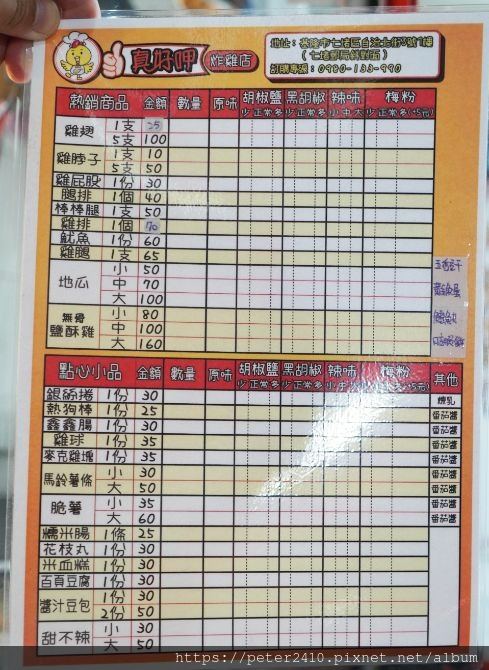 真好呷 炸雞店
地址：基隆市七堵區自治北街3號1樓
(七堵郵局斜對面)
訂購專線：0980-133-990
熱銷商品 金額 數量 原味 胡椒鹽 黑胡椒 辣味 梅粉
少 正常 多 少 正常 多 小 中 大 少 正常 多 (+5元)
雞翅 1支 25
5支 100
雞脖子 1支 10
5支 50
雞屁股 1份 30
腿排 1個 40
棒棒腿 1支 50
雞排 1個 70
魷魚 1份 60
雞腿 1支 65
地瓜 小 50
中 70
大 100
無骨鹽酥雞 小 80
中 100
大 160
點心小品 金額 數量 原味 胡椒鹽 黑胡椒 辣味 梅粉 其他
少 正常 多 少 正常 多 小 中 大 正常 多
銀絲捲 1份 30 煉乳
熱狗棒 1份 25 番茄醬
鑫鑫腸 1份 30 番茄醬
雞球 1份 35 番茄醬
麥克雞塊 1份 35 番茄醬
馬鈴薯條 小 30 番茄醬
大 50 番茄醬
脆薯 小 35 番茄醬
大 60 番茄醬
糯米腸 1條 25
花枝丸 1份 30
米血糕 1份 30
百頁豆腐 1份 30
醬汁豆包 1份 30
2份 50
甜不辣 小 30
大 50
https://peter2410.pixnet.net/album